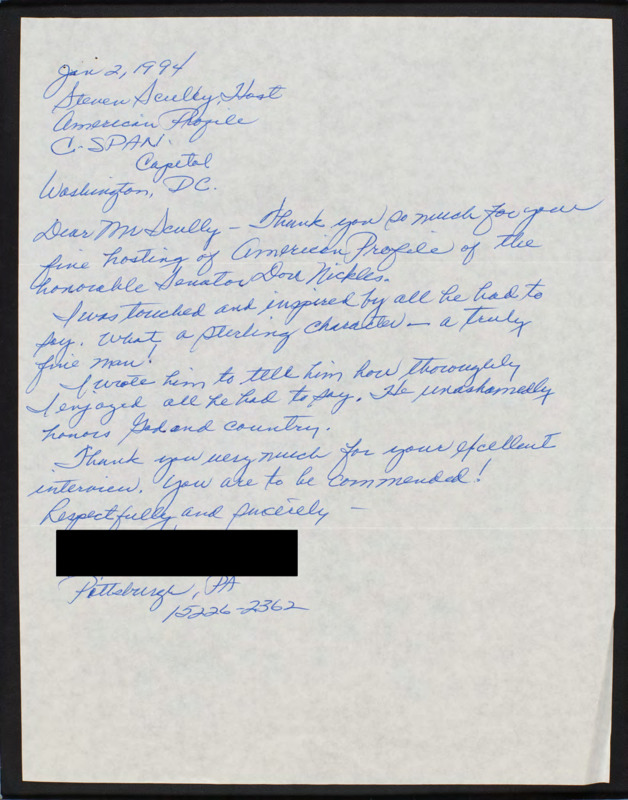 Jan 2, 1994
Steven Scully, Host
American Profile
C-SPAN
Capitol
Washington, DC.
Dear Mr Scully - Thank you so much for your
fine hosting of American Profile of the
honorable Senator Don Nickles.
I was touched and inspired by all he had to
say. What a sterling character - a truly
fine man!
I wrote him to tell him how thoroughly
I enjoyed all he had to say. He unashamedly
honors God and country.
Thank you very much for your excellent
interview. You are to be commended!
Respectfully and sincerely -
Pittsburgh, PA
15226-2362